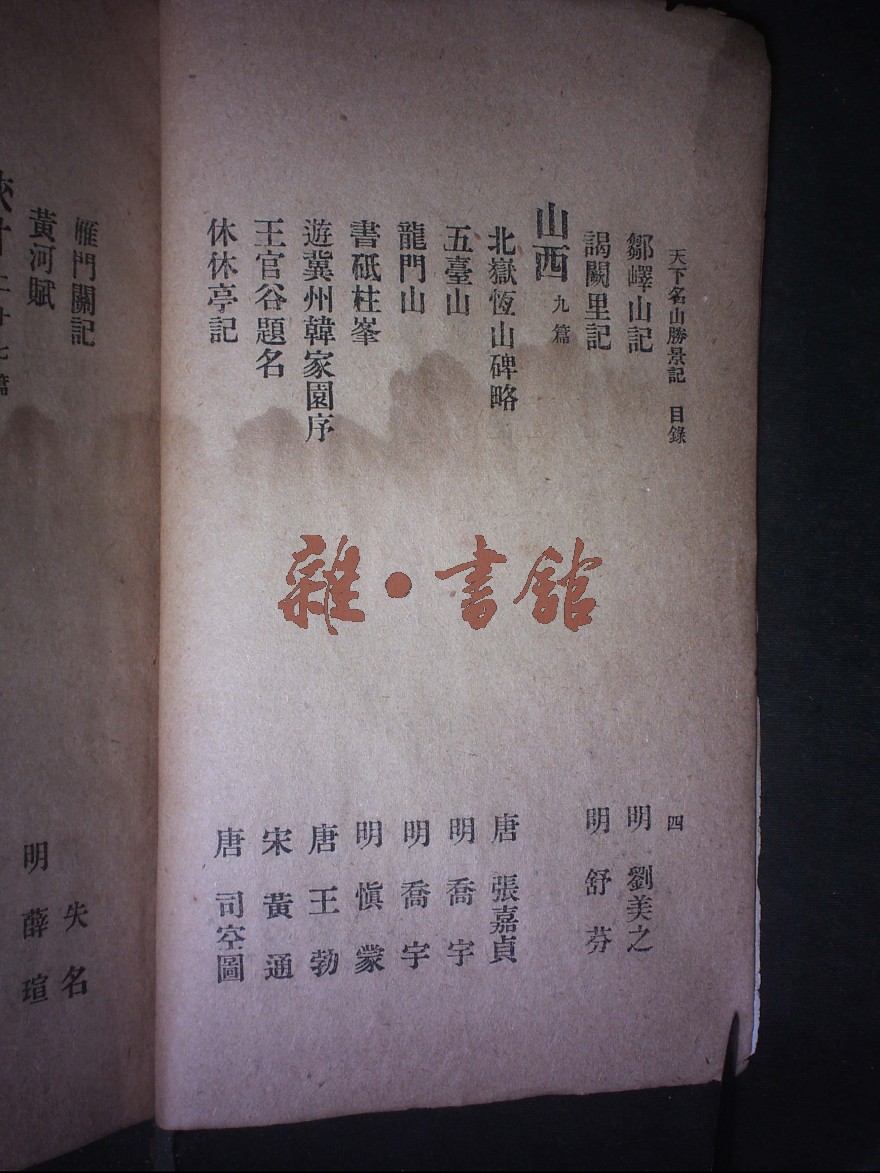 天下名山勝景記　目錄　四
鄒嶧山記　明　劉美之
謁闕里記　明　舒芬
山西　九篇
北嶽恆山碑略　唐　張嘉貞
五臺山　明　喬宇
龍門山　明　喬宇
書砥柱峯　明　愼蒙
遊冀州韓家園序　唐　王勃
王官谷題名　宋　黃通
休休亭記　唐　司空圖
雁門關記　失名
黃河賦　明　薛瑄
二十七篇
雜·書館